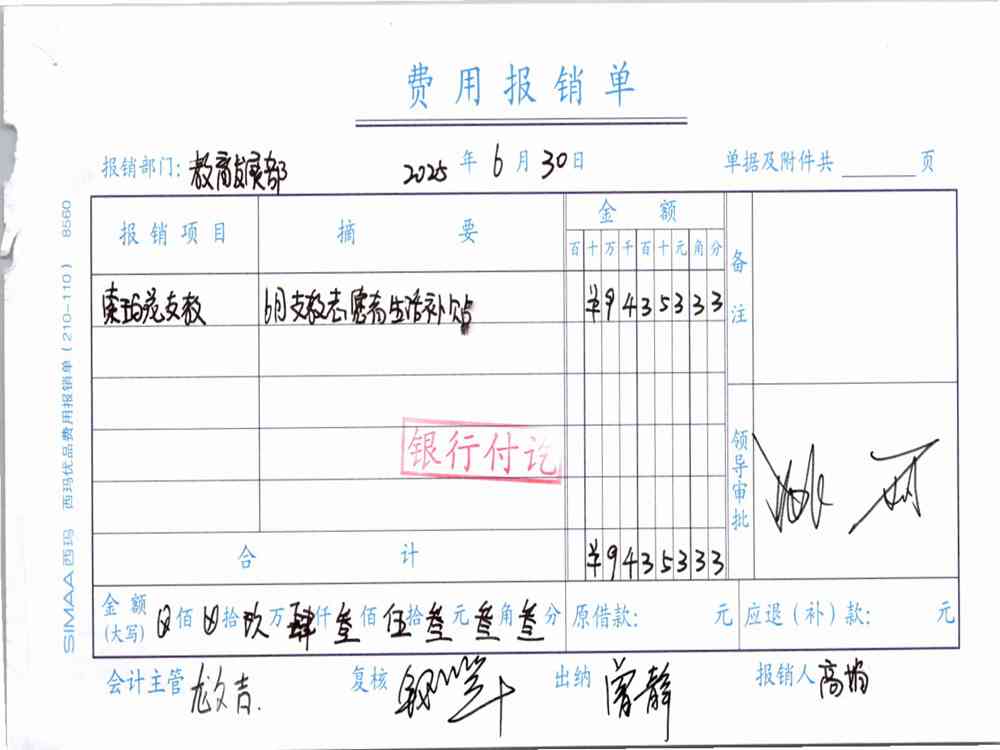 费用报销单
报销部门: 教育发展部 2025 年 6 月 30 日 单据及附件共 页
报销项目 摘要 金额 备注
百 十 万 千 百 十 元 角 分
支教 6月支教志愿者生活补贴 ¥9435333
银行付讫
领导审批
合计 ¥9435333
金额(大写) 佰 拾 玖 万 肆 仟 叁 佰 伍 拾 叁 元 叁 角 叁 分 原借款: 元 应退(补)款: 元
会计主管 尤文吉 复核 出纳 曾静 报销人 高
SIMAA西玛 西玛优品费用报销单(210-110) 8560